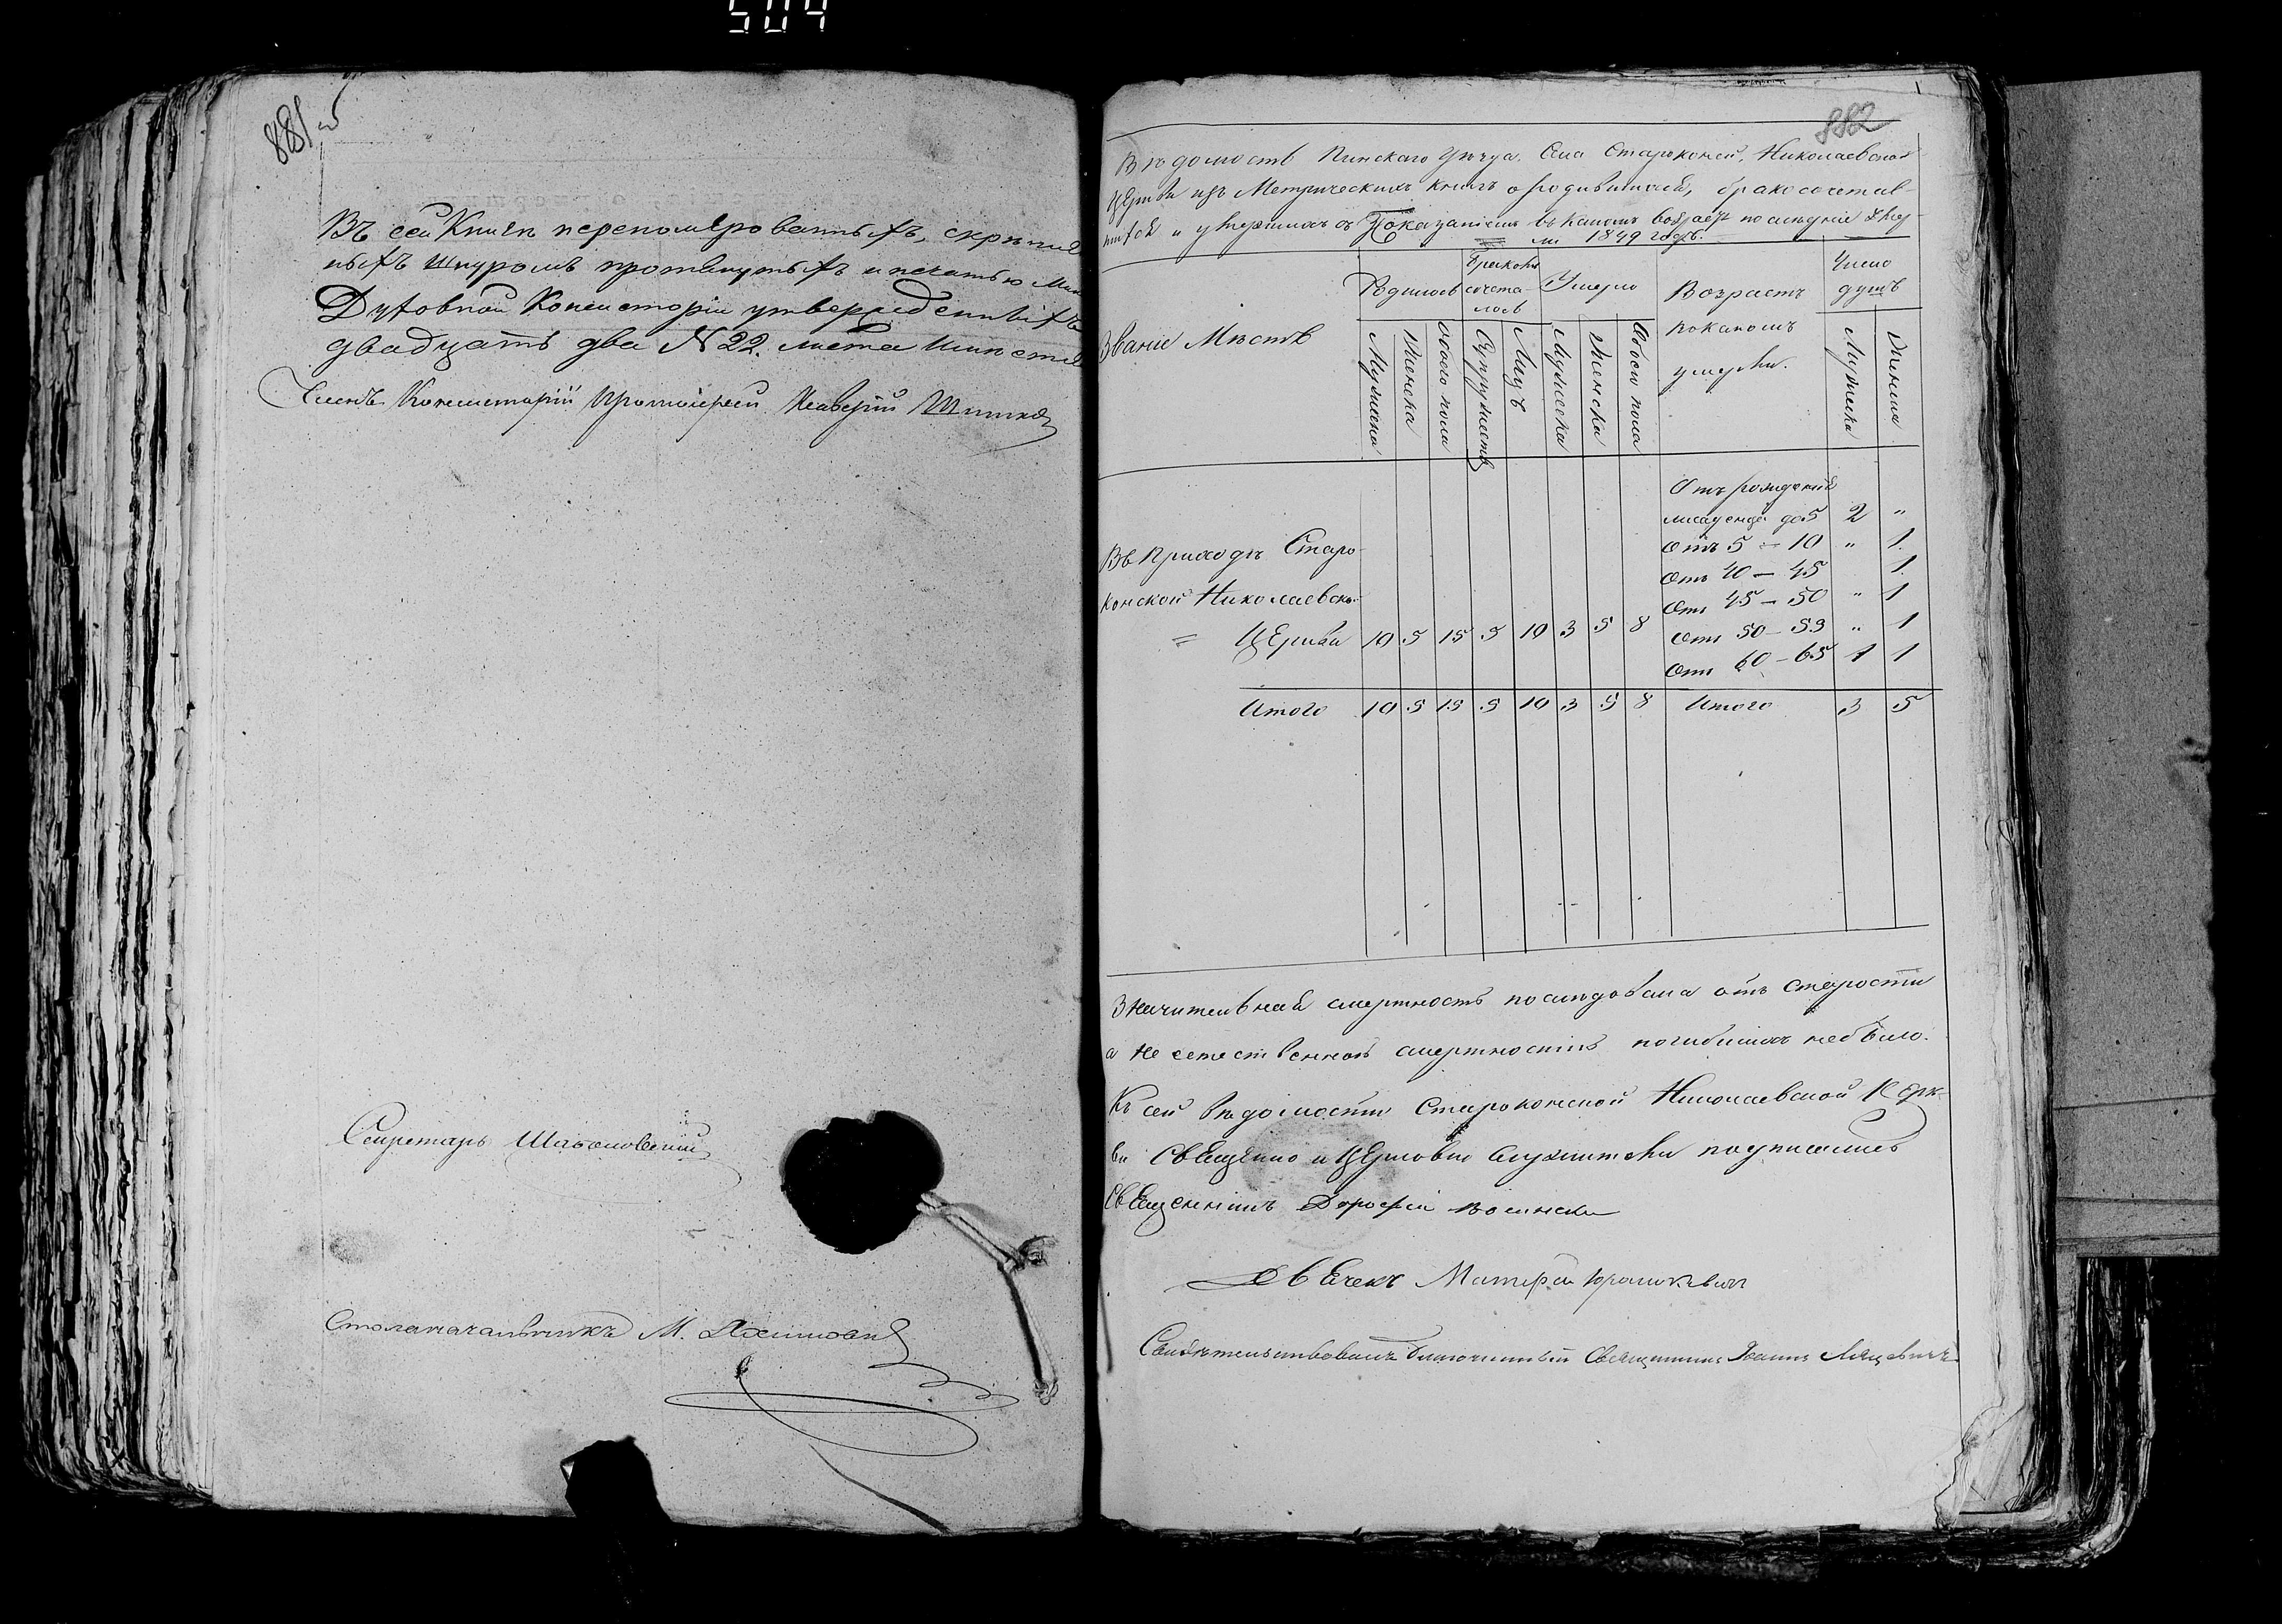 504
881
Въ сей Книгѣ перенумерованныхъ, скрѣплен
ныхъ шнуромъ протянутыхъ и печатью Мин
Духовной Консисторіи утвержденныхъ
двадцать два N 22. листа
Членъ Консисторіи Протоіерей
Секретарь
Столоначальникъ М.
882
Вѣдомость Пинскаго Уѣзда, Села Староконей, Николаевской
Церкви изъ Метрическихъ книгъ о родившихся, бракосочетав-
шихся и умершихъ съ Показаніемъ въ какомъ возрастѣ
1849 годъ.
Званіе Мѣстъ
Родилось
Мужеска
Женска
Обоего пола
Бракомъ
сочета-
лось
Супружествъ
Лицъ
Умерло
Мужеска
Женска
Обоего пола
Возрастъ
въ какомъ
умерли.
Число
душъ
Мужеска
Женска
Въ Приходѣ Старо-
конской Николаевской
= Церкви 10 5 15 5 10 3 5 8
Отъ рожденія
младенца до 5 2 "
Отъ 5 – 10 " 1.
Отъ 40 – 45 1.
Отъ 45 – 50 " 1
Отъ 50 – 55 " 1
Отъ 60 – 65 1 1
Итого 10 5 15 5 10 3 5 8 Итого 3 5
Значительная смертность послѣдовала отъ старости
а не естественною смертностію погибшихъ небыло.
Къ сей вѣдомости Староконской Николаевской Церк-
ви Священно и Церковно служители подписались
Священникъ Дорофей
Дьячекъ Матфей
Свидѣтельствовалъ благочинный Священникъ Іоаннъ